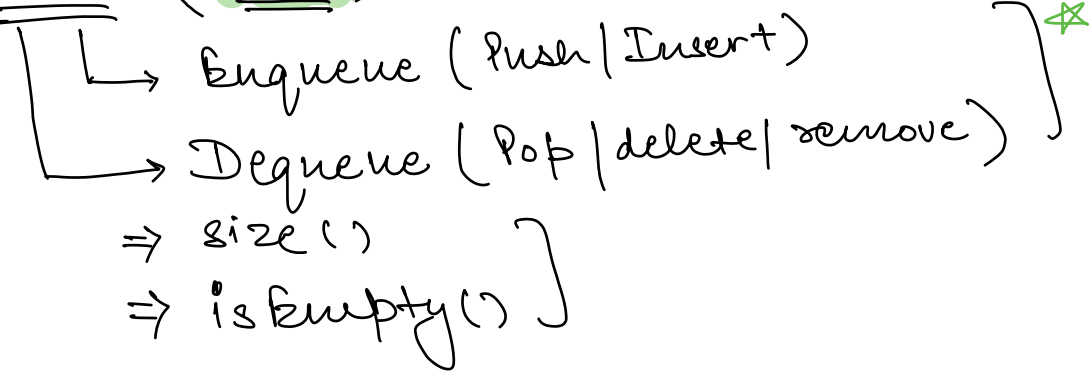 → Enqueue (Push | Insert)
→ Dequeue (Pop | delete | remove)
⇒ size()
⇒ isEmpty()